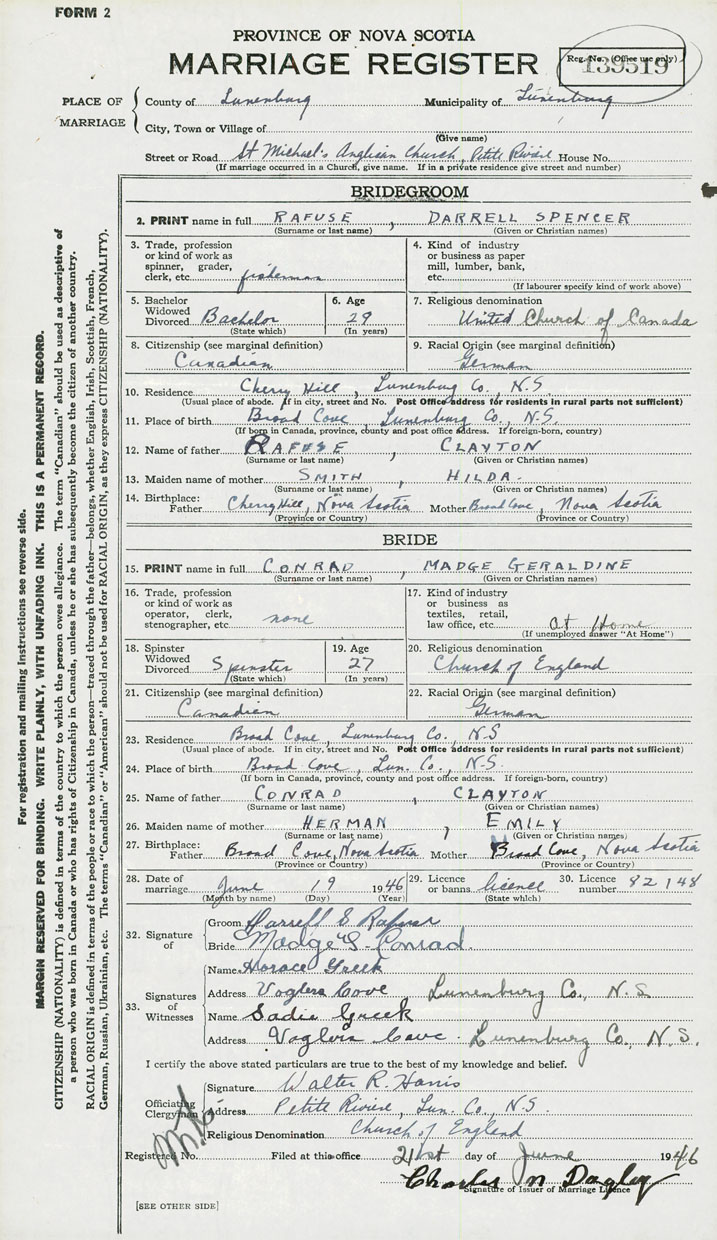 FORM 2
PROVINCE OF NOVA SCOTIA
MARRIAGE REGISTER
Reg. No. (Office use only)
139519
PLACE OF MARRIAGE
County of Lunenburg Municipality of Lunenburg
City, Town or Village of
(Give name)
Street or Road St Michael's Anglican Church, Petite Rivière House No.
(If marriage occurred in a Church, give name. If in a private residence give street and number)
BRIDEGROOM
2. PRINT name in full RAFUSE, DARRELL SPENCER
(Surname or last name) (Given or Christian names)
3. Trade, profession or kind of work as spinner, grader, clerk, etc. fisherman
4. Kind of industry or business as paper mill, lumber, bank, etc.
(If labourer specify kind of work above)
5. Bachelor Widowed Divorced Bachelor
(State which)
6. Age 29
(In years)
7. Religious denomination
United Church of Canada
8. Citizenship (see marginal definition)
Canadian
9. Racial Origin (see marginal definition)
German
10. Residence Cherry Hill, Lunenburg Co., N.S.
(Usual place of abode. If in city, street and No. Post Office address for residents in rural parts not sufficient)
11. Place of birth Broad Cove, Lunenburg Co., N.S.
(If born in Canada, province, county and post office address. If foreign-born, country)
12. Name of father RAFUSE, CLAYTON
(Surname or last name) (Given or Christian names)
13. Maiden name of mother SMITH HILDA.
(Surname or last name) (Given or Christian names)
14. Birthplace: Father Cherry Hill, Nova Scotia Mother Broad Cove, Nova Scotia
(Province or Country) (Province or Country)
BRIDE
15. PRINT name in full CONRAD, MADGE GERALDINE
(Surname or last name) (Given or Christian names)
16. Trade, profession or kind of work as operator, clerk, stenographer, etc. none
17. Kind of industry or business as textiles, retail, law office, etc. At Home
(If unemployed answer "At Home")
18. Spinster Widowed Divorced Spinster
(State which)
19. Age 27
(In years)
20. Religious denomination
Church of England
21. Citizenship (see marginal definition)
Canadian
22. Racial Origin (see marginal definition)
German
23. Residence Broad Cove, Lunenburg Co., N.S
(Usual place of abode. If in city, street and No. Post Office address for residents in rural parts not sufficient)
24. Place of birth Broad Cove, Lun. Co., N.S.
(If born in Canada, province, county and post office address. If foreign-born, country)
25. Name of father CONRAD, CLAYTON
(Surname or last name) (Given or Christian names)
26. Maiden name of mother HERMAN, EMILY
(Surname or last name) (Given or Christian names)
27. Birthplace: Father Broad Cove, Nova Scotia Mother Broad Cove, Nova Scotia
(Province or Country) (Province or Country)
28. Date of marriage June 19 1946
(Month by name) (Day) (Year)
29. Licence or banns licence
(State which)
30. Licence number 82148
32. Signature of
Groom Darrell S Rafuse
Bride Madge G. Conrad.
33. Signatures of Witnesses
Name Horace Greek
Address Voglers Cove Lunenburg Co., N.S.
Name Sadie Greek
Address Voglers Cove. Lunenburg Co., N.S.
I certify the above stated particulars are true to the best of my knowledge and belief.
Officiating Clergyman
Signature Walter R. Harris
Address Petite Rivière, Lun. Co., N.S.
Religious Denomination Church of England
Registered No. Filed at this office 21st day of June 1946
Charles N Dagley
Signature of Issuer of Marriage Licence
[SEE OTHER SIDE]
For registration and mailing instructions see reverse side.
MARGIN RESERVED FOR BINDING. WRITE PLAINLY, WITH UNFADING INK. THIS IS A PERMANENT RECORD.
CITIZENSHIP (NATIONALITY) is defined in terms of the country to which the person owes allegiance. The term "Canadian" should be used as descriptive of
a person who was born in Canada or who has rights of Citizenship in Canada, unless he or she has subsequently become the citizen of another country.
RACIAL ORIGIN is defined in terms of the people or race to which the person—traced through the father—belongs, whether English, Irish, Scottish, French,
German, Russian, Ukrainian, etc. The terms "Canadian" or "American" should not be used for RACIAL ORIGIN, as they express CITIZENSHIP (NATIONALITY).